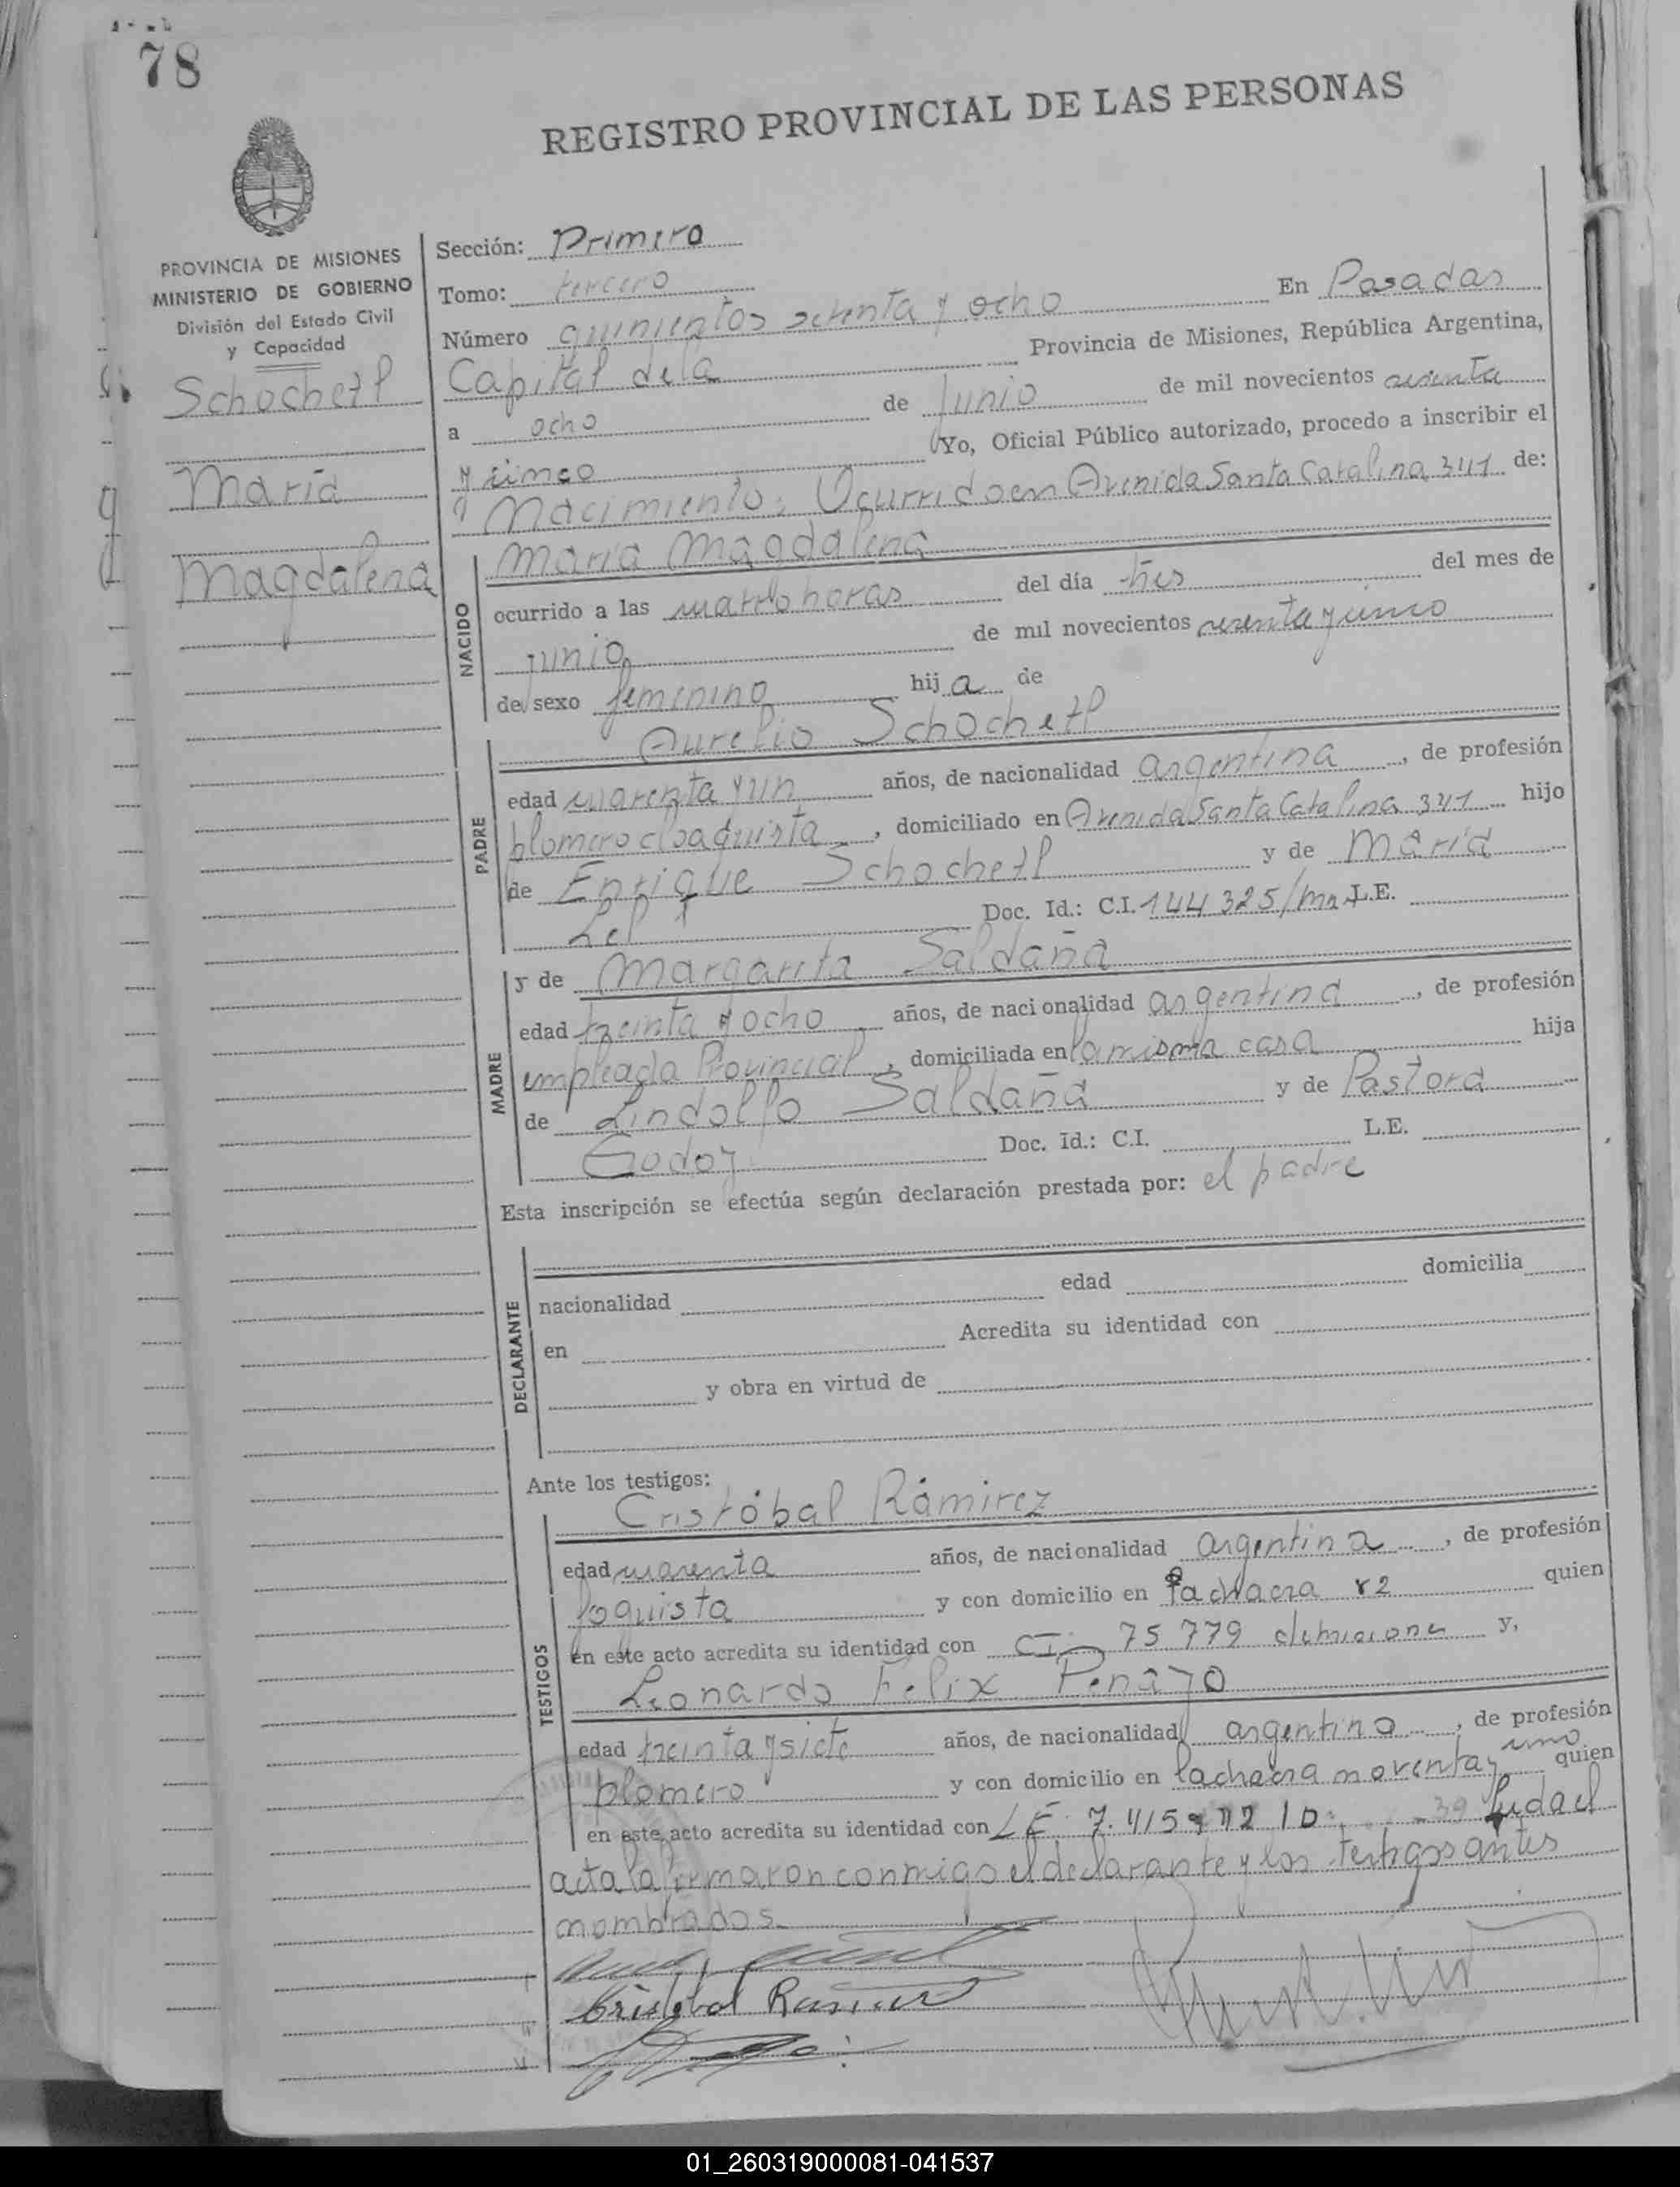 78
REGISTRO PROVINCIAL DE LAS PERSONAS
PROVINCIA DE MISIONES
MINISTERIO DE GOBIERNO
División del Estado Civil
y Capacidad
Schochetl
Maria
Magdalena
Sección: Primera
Tomo: tercero
Número quinientos setenta y ocho En Posadas
Capital dela Provincia de Misiones, República Argentina,
a ocho de Junio de mil novecientos sesenta
y cinco Yo, Oficial Público autorizado, procedo a inscribir el
Nacimiento; Ocurrido en Avenida Santa Catalina 341 de:
NACIDO
Maria Magdalena
ocurrido a las cuatro horas del día tres del mes de
junio de mil novecientos sesenta y cinco
de sexo femenino hija de
PADRE
Aurelio Schochetl
edad cuarenta y un años, de nacionalidad argentina, de profesión
plomero cloaquista, domiciliado en Avenida Santa Catalina 341 hijo
de Enrique Schochetl y de Maria
Doc. Id.: C.I. 144 325/mn L.E.
MADRE
y de Margarita Saldaña
edad treinta y ocho años, de nacionalidad argentina, de profesión
empleada Provincial, domiciliada en la misma casa hija
de Lindolfo Saldaña y de Pastora
Godoy Doc. Id.: C.I. L.E.
Esta inscripción se efectúa según declaración prestada por: el padre
DECLARANTE
nacionalidad edad domicilia
en Acredita su identidad con
y obra en virtud de
Ante los testigos:
TESTIGOS
Cristóbal Ramirez
edad cuarenta años, de nacionalidad argentina, de profesión
foguista y con domicilio en la chacra 82 quien
en este acto acredita su identidad con CI 75 779 de misiones y,
Leonardo Felix Penayo
edad treinta y siete años, de nacionalidad argentino, de profesión
plomero y con domicilio en la chacra noventa y uno quien
en este acto acredita su identidad con LE 7.415 39 Leida el
acta la firmaron conmigo el declarante y los testigos antes
nombrados.
Cristobal Ramirez
01_260319000081-041537